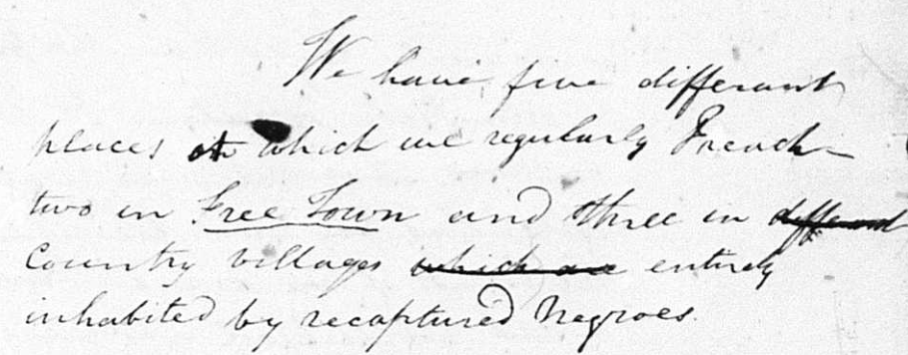 We have five different
places at which we regularly Preach—
two in Free Town and three in different
Country villages which are entirely
inhabited by recaptured Negroes.